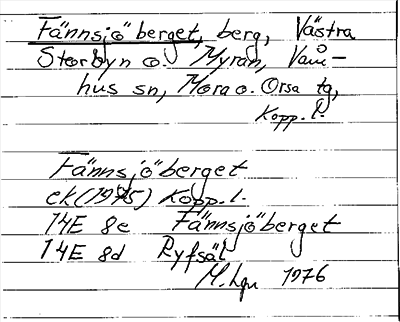 Fännsjöberget, berg, Västra
Storbyn o. Myran, Våm-
hus sn, Mora o. Orsa tg,
Kopp. l.
Fännsjöberget
ek (1975) Kopp. l.
14E 8e Fännsjöberget
14E 8d Ryfsäl
M. Lgn 1976